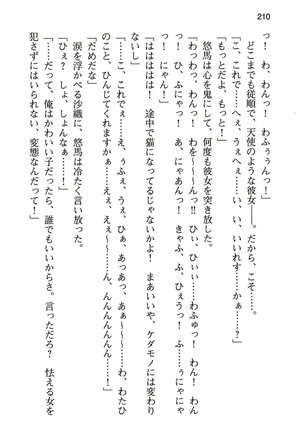 210
っ！　わ、わんっ！　わふぅぅんっ！
どこまでも従順で、天使のような彼女――。だから、こそ……。
「こ、これで……へぇ、うぇへぇ……い、いい、いいれす……かぁ……？」
「もっとだよ、もっと！」
悠馬は心を鬼にして、何度も彼女を突き放した。
「わっわっ、わんっ！　わ～～～んっ!!　ひぃ、ひぃ……わふゅっ！　わん！　わんっ！
ひ、ひ、ふにゃっ！　あ、にゃあんっ！　きゃふ、ふ、ひぇうっ！　ふ、ふぅにゃにゃ
っ！　にゃん！」
「はははははは！　途中で猫になってるじゃないかよ！　まあいいや、ケダモノには変わり
ないし」
「……こ、これでぇ……え、うふぇ、うぇ、ひぁ、あっあっ、あぁ～～……わ、わたひ
のこと、ひんじてくれますかぁ……えぇ、えぇ～……ん、んんんんんん……！」
「だめだな」
「ひぇぇ！　しょ、しょんなぁ……！」
涙を浮かべる沙織に、悠馬は冷たく言い放った。
「だって、俺はかわいい子だったら、誰でもいいからさ。言っただろ？　怯える女を
犯さずにはいられない、変態なんだって！」